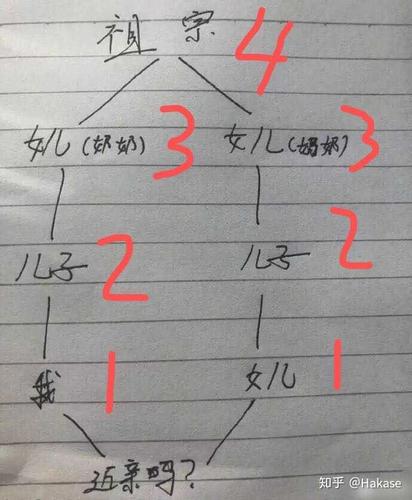 祖宗 4
女儿(奶奶) 3 女儿(奶奶) 3
儿子 2 儿子 2
我 1 女儿 1
近亲吗?
知乎 @Hakase